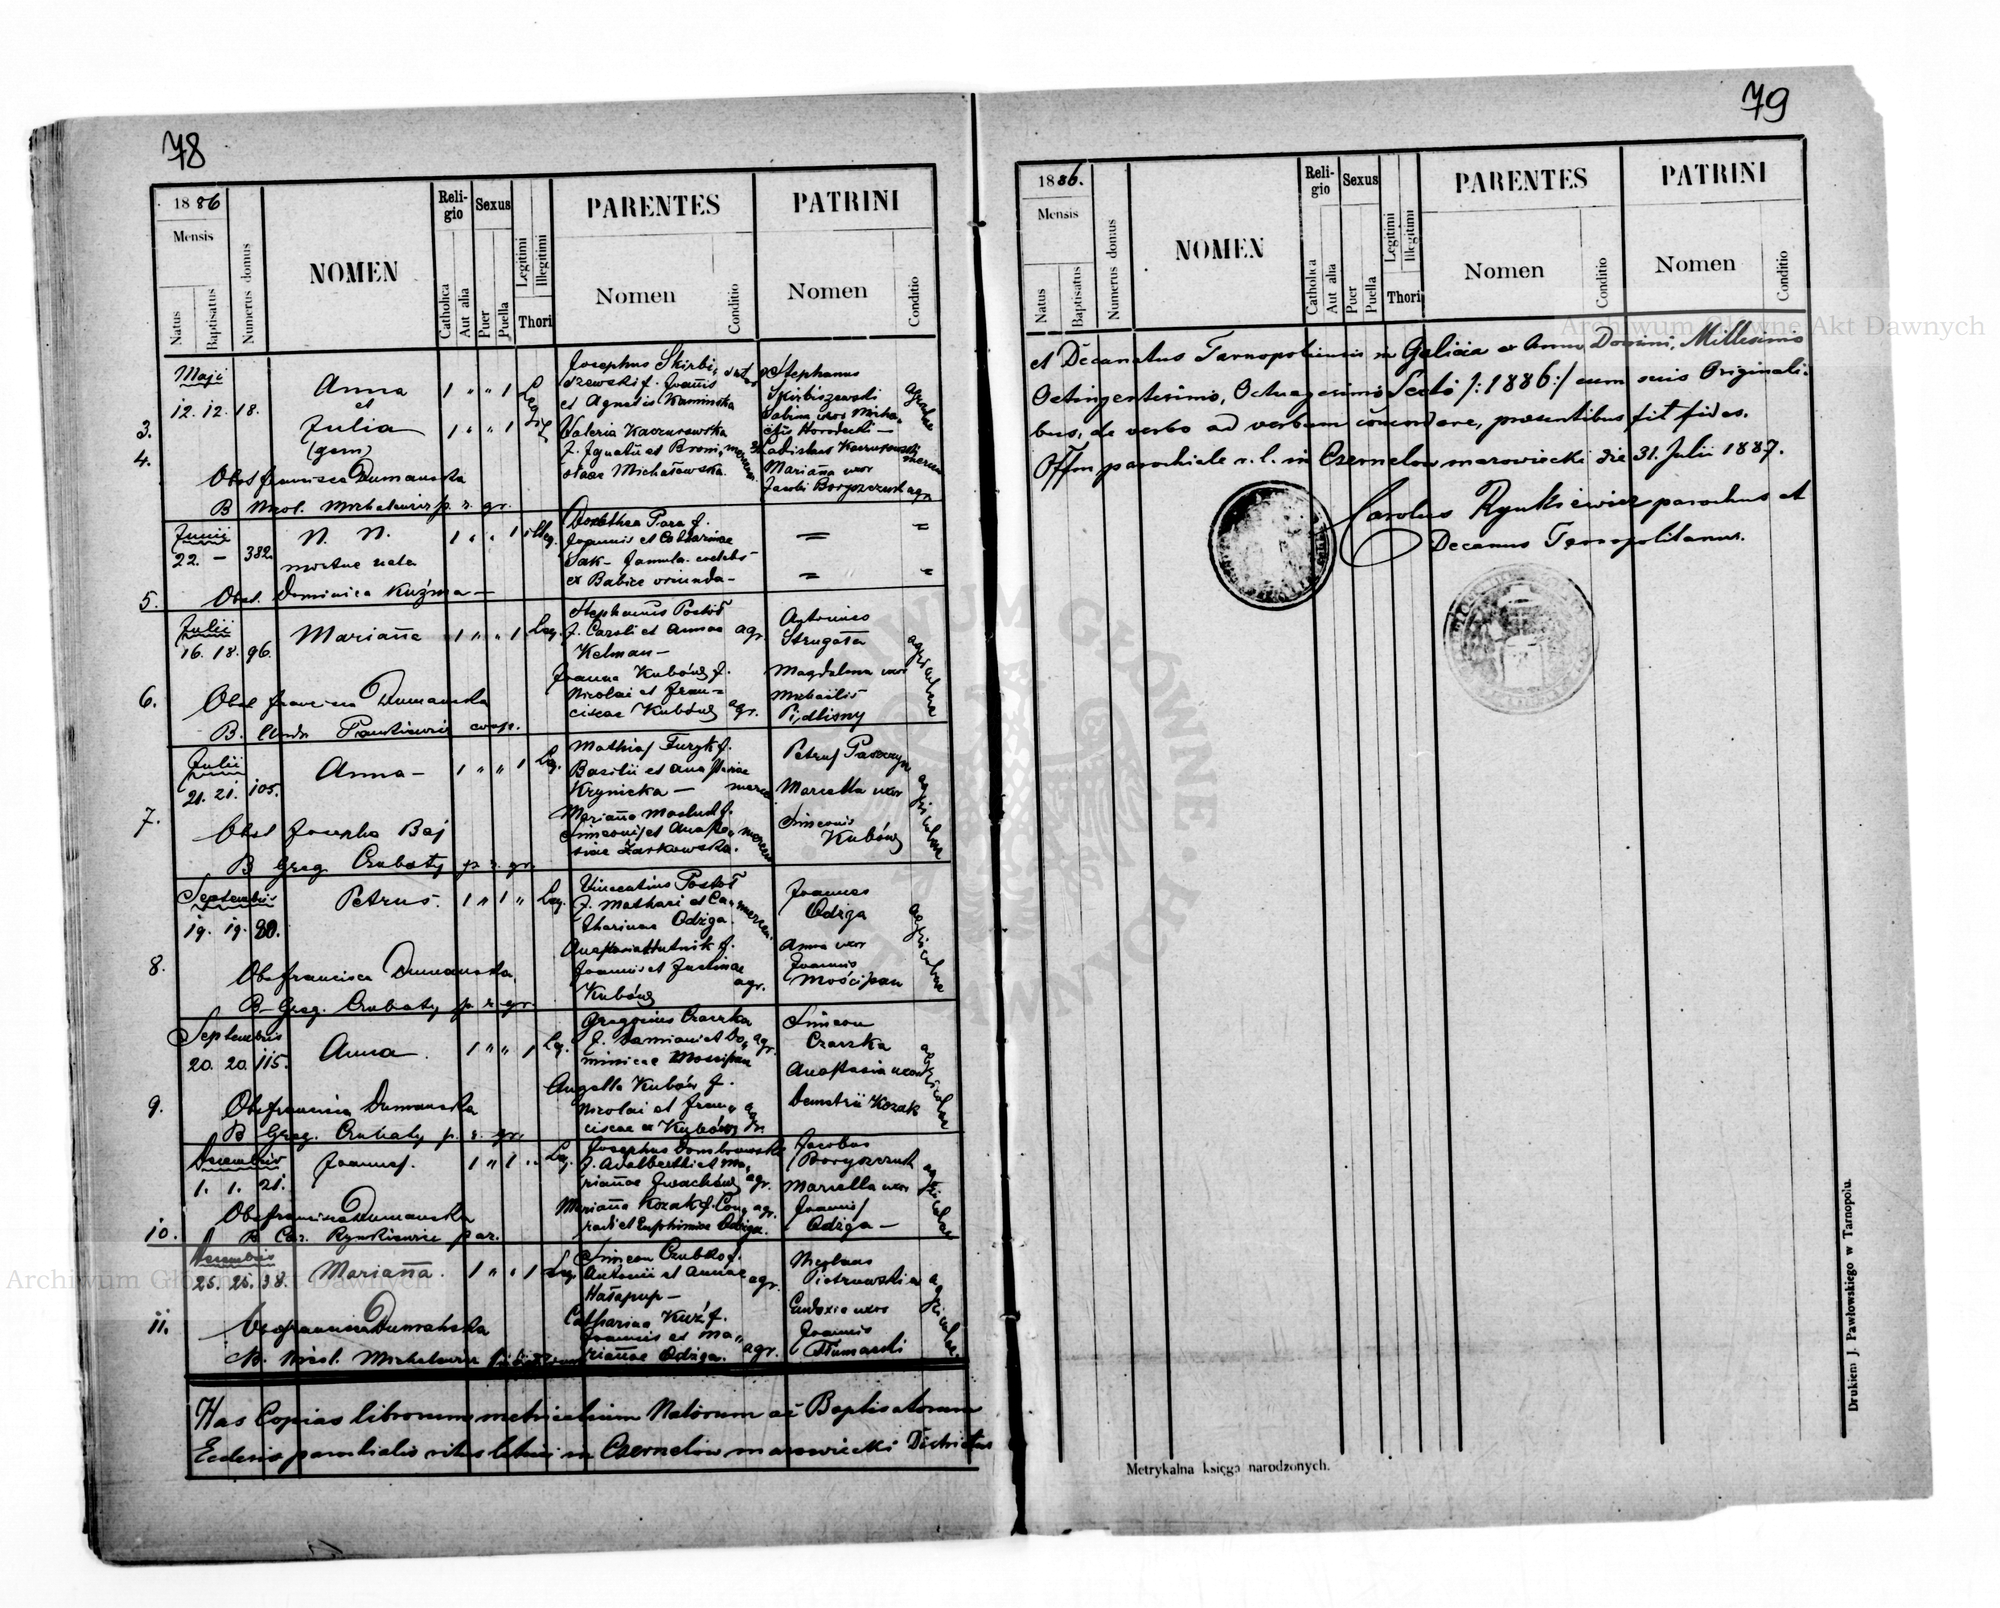 78
1886
Mensis
Natus
Baptisatus
Numerus domus
NOMEN
Religio
Catholica
Aut alia
Sexus
Puer
Puella
Legitimi
Illegitimi
Thori
PARENTES
Nomen
Conditio
PATRINI
Nomen
Conditio
3.
4.
Maji
12. 12. 18.
Anna
et
Julia
(gem)
1 " " 1
1 " " 1
Josephus Skirbi-
szewski f. Joanis
et Agnetis Kaminska
Valeria Kaczurowska
f. Ignatii et Broni-
slaae Michałowska.
Stephanus
Skirbiszewski
Sabina uxor Micha-
Horodecki —
Ladislaus Kaczurowski
Mariana uxor
Jacobi Boryszczuk agr.
Obst francisca Dumanska
B Nicol. Michalewicz p. r. gr.
5.
Junii
22. — 382.
N. N.
mortue nata
1 " " 1 illeg.
Dorothea Para f.
Joannis et Catharinae
Sak — famula. coelebs —
ex Babice oriunda —
Obst. Dominica Kuźma —
6.
Julii
16. 18. 96.
Mariana
1 " " 1 Leg.
Stephanus Postół
f. Caroli et Annae agr.
Kelman —
Joanna Kubów f.
Nicolai et Fran-
ciscae Kubów agr.
Antonius
Strugała
Magdalena uxor
Michaelis
Pidlisny
agricolae
Obst francisca Dumanska
B. coop.
7.
Julii
21. 21. 105.
Anna —
1 " " 1 Leg.
Mathias Furyk f.
Basilii et Anastasiae
Krynicka —
Mariana f.
Simeonis et Anasta-
siae Żarkowska.
Petrus
Mariella uxor
Simeonis
Kubów
agricolae
Obst Josepha Baj
B Greg Czubaty p. r. gr.
8.
Septembris
19. 19. 80.
Petrus.
1 " 1 " Leg.
Vincentius Postół
f. Mathaei et Ca-
tharinae Odzga.
Anastasia Hutnik f.
Joannis et Justinae
Kubów agr.
Joannes
Odzga
Anna uxor
Joannis
Mościpan
agricolae
Obs francisca Dumanska
B — Greg. Czubaty p. r. gr.
9.
Septembris
20. 20. 115.
Anna.
1 " " 1 Leg.
Gregorius Czaczka
f. Damiani et Do- agr.
minicae Mościpan
Angella Kubów f.
Nicolai et Fran-
ciscae Kubów agr.
Simeon
Czaczka
Anastasia uxor
Demetrii Kozak
agricolae
Obs francisca Dumanska
B Greg. Czubaty p. r. gr.
10.
Decembris
1. 1. 21.
Joannes.
1 " 1 " Leg.
Josephus Dombrowski
f. Adalberthi et Ma-
rianae Iwachów agr.
Mariana Kozak f. Con- agr.
radi et Euphimiae Odzga.
Jacobus
Boryszczuk
Mariella uxor
Joannis
Odzga —
agricolae
Obs francisca Dumanska
B Car. Rynkiewicz par.
11.
Decembris
25. 25. 38.
Mariana.
1 " " 1 Leg
Simeon Czubko f.
Antonii et Annae agr.
Hałapup —
Catharina Kuź f.
Joannis et Ma-
rianae Odzga. agr.
Nicolaus
Eudoxia uxor
Joannis
Tłumacki
agricolae
Obs francisca Dumanska
B. Nicol. Michalewicz
Has Copias librorum metricalium Natorum ac Baptisatorum
Eclesia parochialis ritus latini in Czernelow mazowiecki Districtus
79
1886.
Mensis
Natus
Baptisatus
Numerus domus
NOMEN
Religio
Catholica
Aut alia
Sexus
Puer
Puella
Legitimi
Illegitimi
Thori
PARENTES
Nomen
Conditio
PATRINI
Nomen
Conditio
et Decanatus Tarnopoliensis in Galicia ex Anno Domini, Millesimo
Octingentesimo, Octuagesimo Sexto /:1886:/ cum suis Originali-
bus, de verbo ad verbum concordare, praesentibus fit fides.
Offm parochiale r. l. in Czernelow mazowiecki die 31. Julii 1887.
Carolus Rynkiewicz parochus et
Decanus Tarnopolitanus.
Metrykalna księga narodzonych.
Drukiem J. Pawłowskiego w Tarnopolu.
Archiwum Główne Akt Dawnych
Archiwum Główne Akt Dawnych